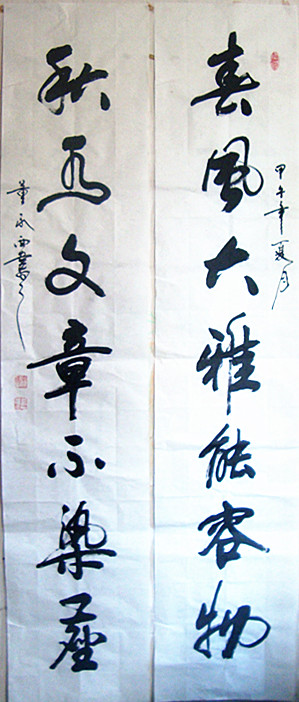 春風大雅能容物
甲午年夏月
秋水文章不染塵
董永西書之